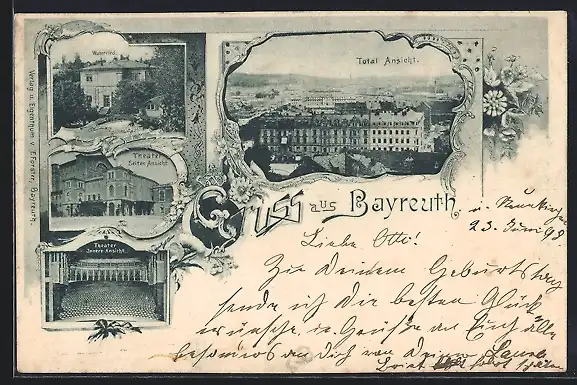 Wahnfried.
Total Ansicht.
Theater
Seiten Ansicht
Theater
Innere Ansicht.
Verlag u. Eigenthum v. Bayreuth.
Gruss aus Bayreuth
23. Juni 98
Liebe Otti!
Zu Deinem Geburtstag
sende ich Dir die besten Glück
wünsche u. Grüße an Euch alle
besonders an Dich von Deiner